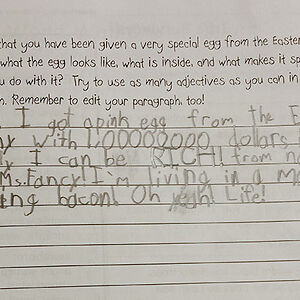 that you have been given a very special egg from the Easter
what the egg looks like, what is inside, and what makes it sp
u do with it? Try to use as many adjectives as you can in
n. Remember to edit your paragraph, too!
I got a pink egg from the E
y with 1,00000000 dollars
y I can be RICH! from n
Ms.Fancy! I'm living in a Ma
ing bacon! Oh yeah! Life!